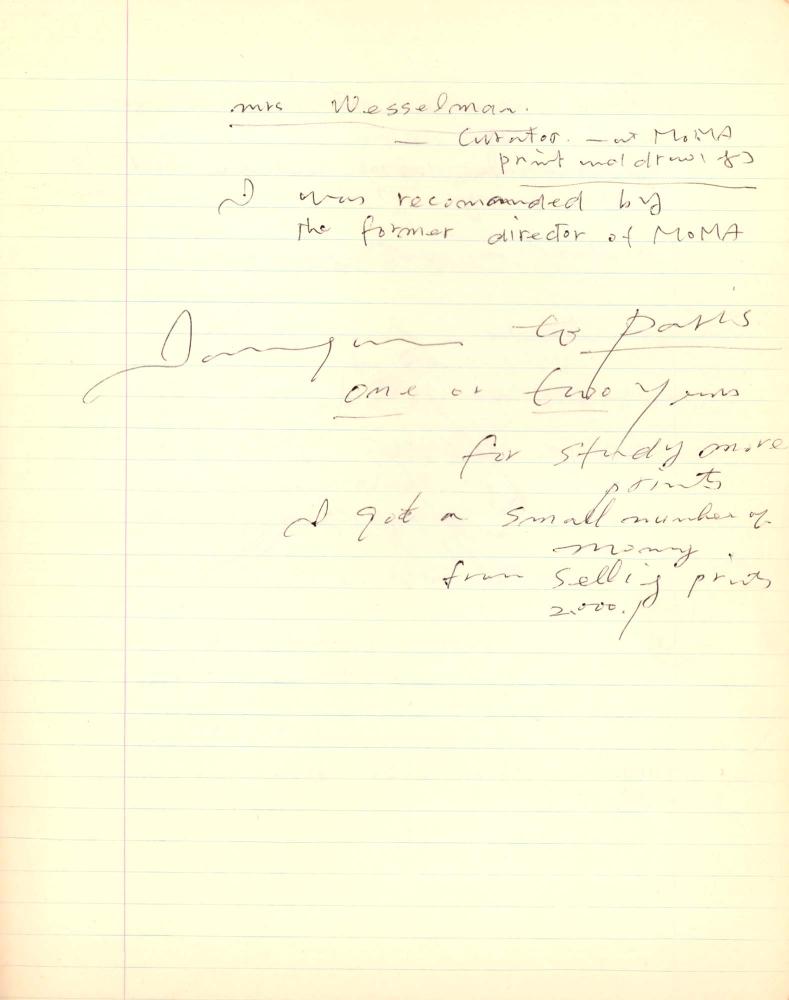 mrs Wesselman.
— Curator. — at MoMA
print and drawings
I was recomanded by
the former director of MoMA
to paris
one or two years
for study more
prints
I got a small number of
money.
from selling prints
2.000.